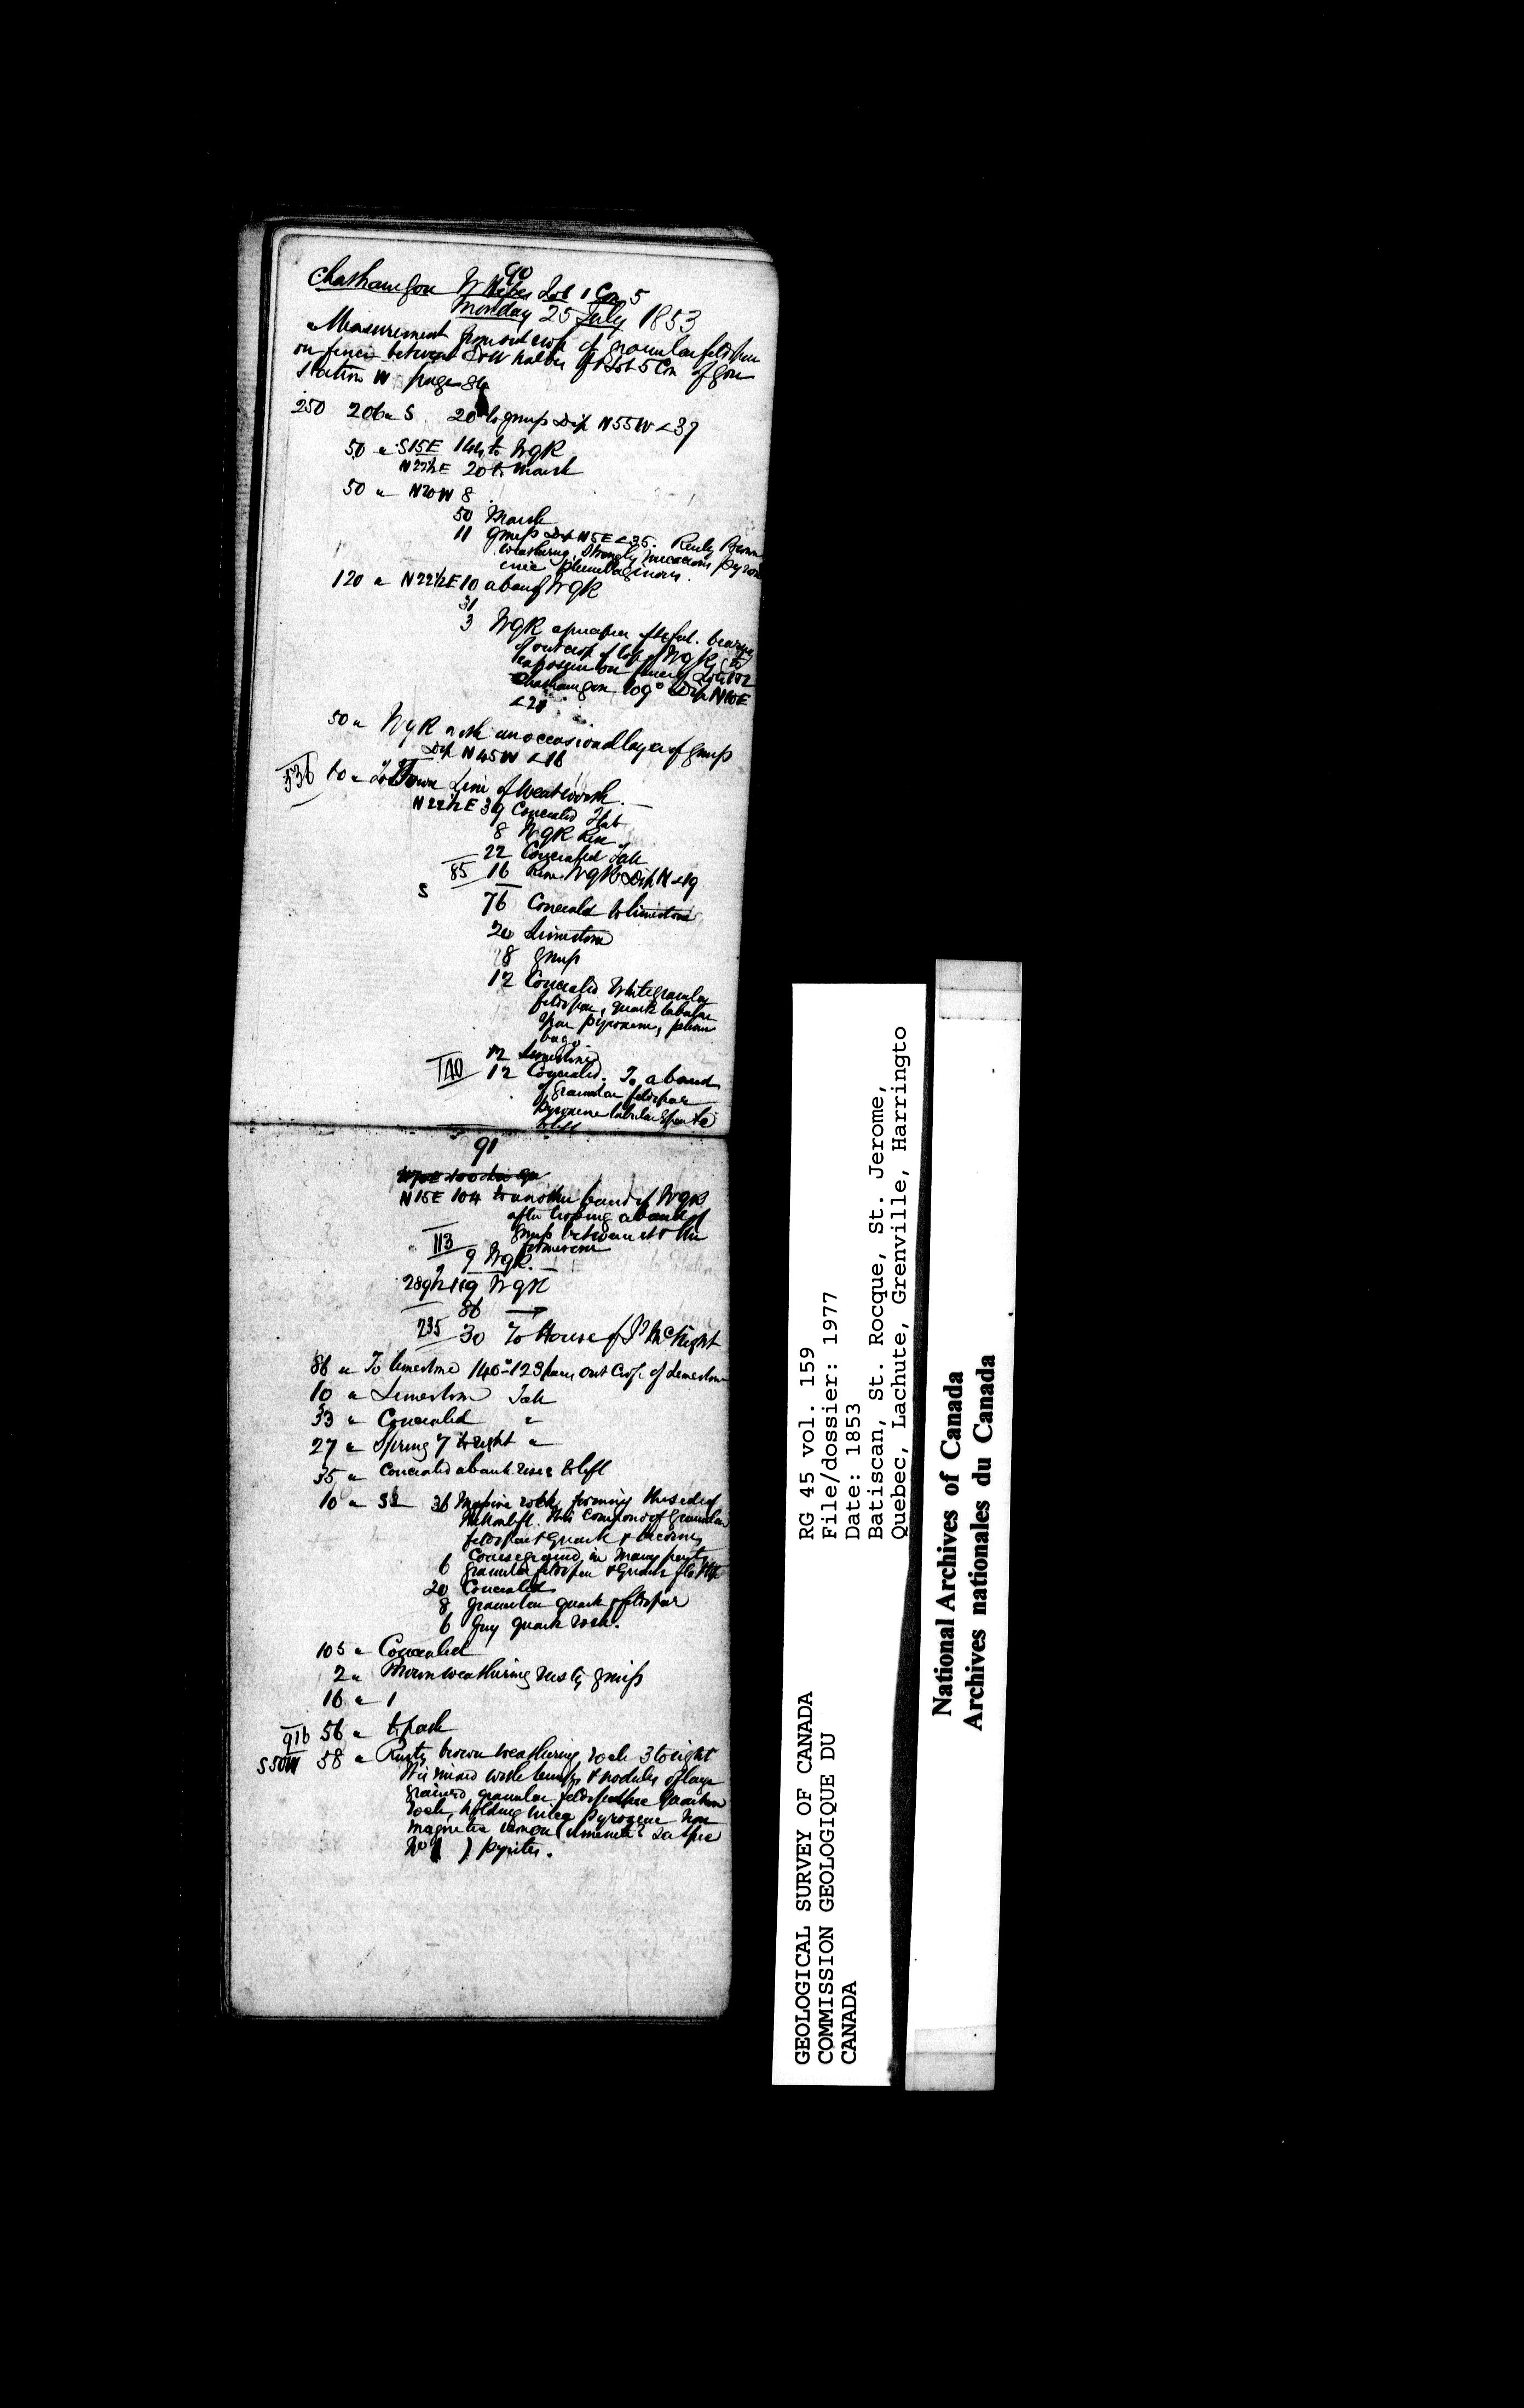 90
Chatham Gore W Lot 1 Con 5
Monday 25 July 1853
Measurement from outcrop of granular feldspar
on fence between halves of Lot 5 Con of Gore
Station W page
250 206 " S 20 to gneiss Dip N55W <37
50 " S15E 144 to WqR
N22½E 20 to marsh
50 " N20W 8
50 Marsh
11 gneiss Dip N5E <35. Rusty Brown
weathering, strongly micaceous
plumbaginous.
120 " N22½E 10 a band of WqR
31
3 WqR
outcrop of top of WqR
exposure on
Chatham Gore 109° Dip N10E
<21
50 " WqR with an occasional layer of gneiss
Dip N45W <16
536 60 " To Town Line of Wentworth.
N22½E 39 Concealed Flat
8 WqR Rise
22 Concealed
85 16 Rise WqR Dip N <19
S
76 Concealed to limestone
20 Limestone
8 gneiss
12 Concealed White granular
feldspar, quartz tabular
spar pyroxene, plum
bago.
12 Limestone
140 12 Concealed. To a band
of granular feldspar
pyroxene tabular spar to
left
91
N15E 104 to another band of WqR
after crossing a band of
gneiss between it & the
113
9 WqR.
289½ 119 WqR
86
235 30 To House of McKnight
86 " To limestone 140°-123 paces out crop of limestone
10 " Limestone
33 " Concealed "
27 " Spring 7 to right "
35 " Concealed a bank rises to left
10 " 36 Massive rock, forming the side of
composed of granular
feldspar & quartz &
6 Coarse grained, in many parts
granular feldspar &
20 Concealed
8 granular quartz & feldspar
6 Grey quartz rock.
105 " Concealed
2 " Brown weathering rusty gneiss
16 " 1
916 56 " to path
S50W 58 " Rusty brown weathering rock 3 to right
It is mixed with lumps & nodules of large
grained, granular feldspathic
rock, holding mica pyroxene Non
magnetic iron ore (ilmenite?
No 1 ) pyrites.
GEOLOGICAL SURVEY OF CANADA
COMMISSION GEOLOGIQUE DU
CANADA
RG 45 vol. 159
File/dossier: 1977
Date: 1853
Batiscan, St. Rocque, St. Jerome,
Quebec, Lachute, Grenville, Harringto
National Archives of Canada
Archives nationales du Canada